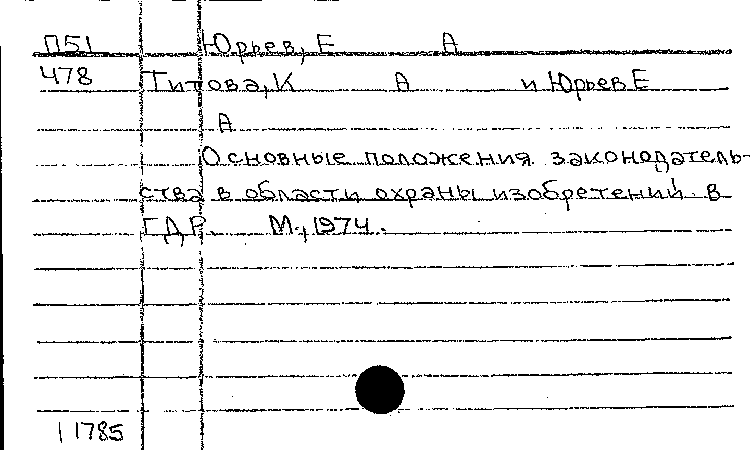 П51 Юрьев, Е А
478 Титова, К А и Юрьев Е
А
Основные положения законодатель-
ства в области охраны изобретений в
ГДР. М., 1974.
11785